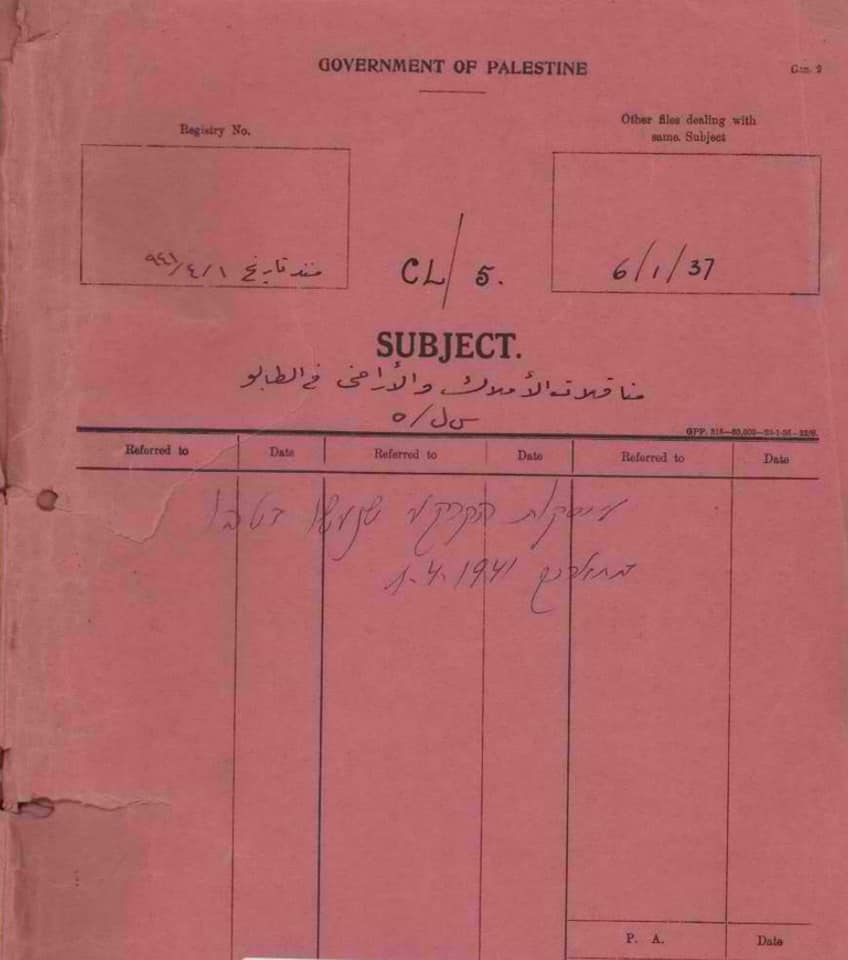 GOVERNMENT OF PALESTINE
Gen. 2
Registry No.
Other files dealing with
same. Subject
منذ تاريخ ١/٤/٩٤١
CL/5.
6/1/37
SUBJECT.
مناقلات الأملاك والأراضي في الطابو
س ل/٥
Referred to Date Referred to Date Referred to Date
עיסקות הקרקע שנעשו בטבו
מתאריך 1.4.1941
P. A. Date